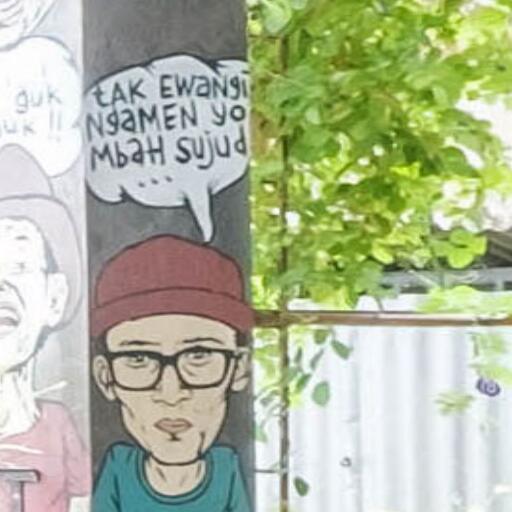 guk
uk !!
tAK EWANgi
NgaMEN yo
MbaH Sujud
...